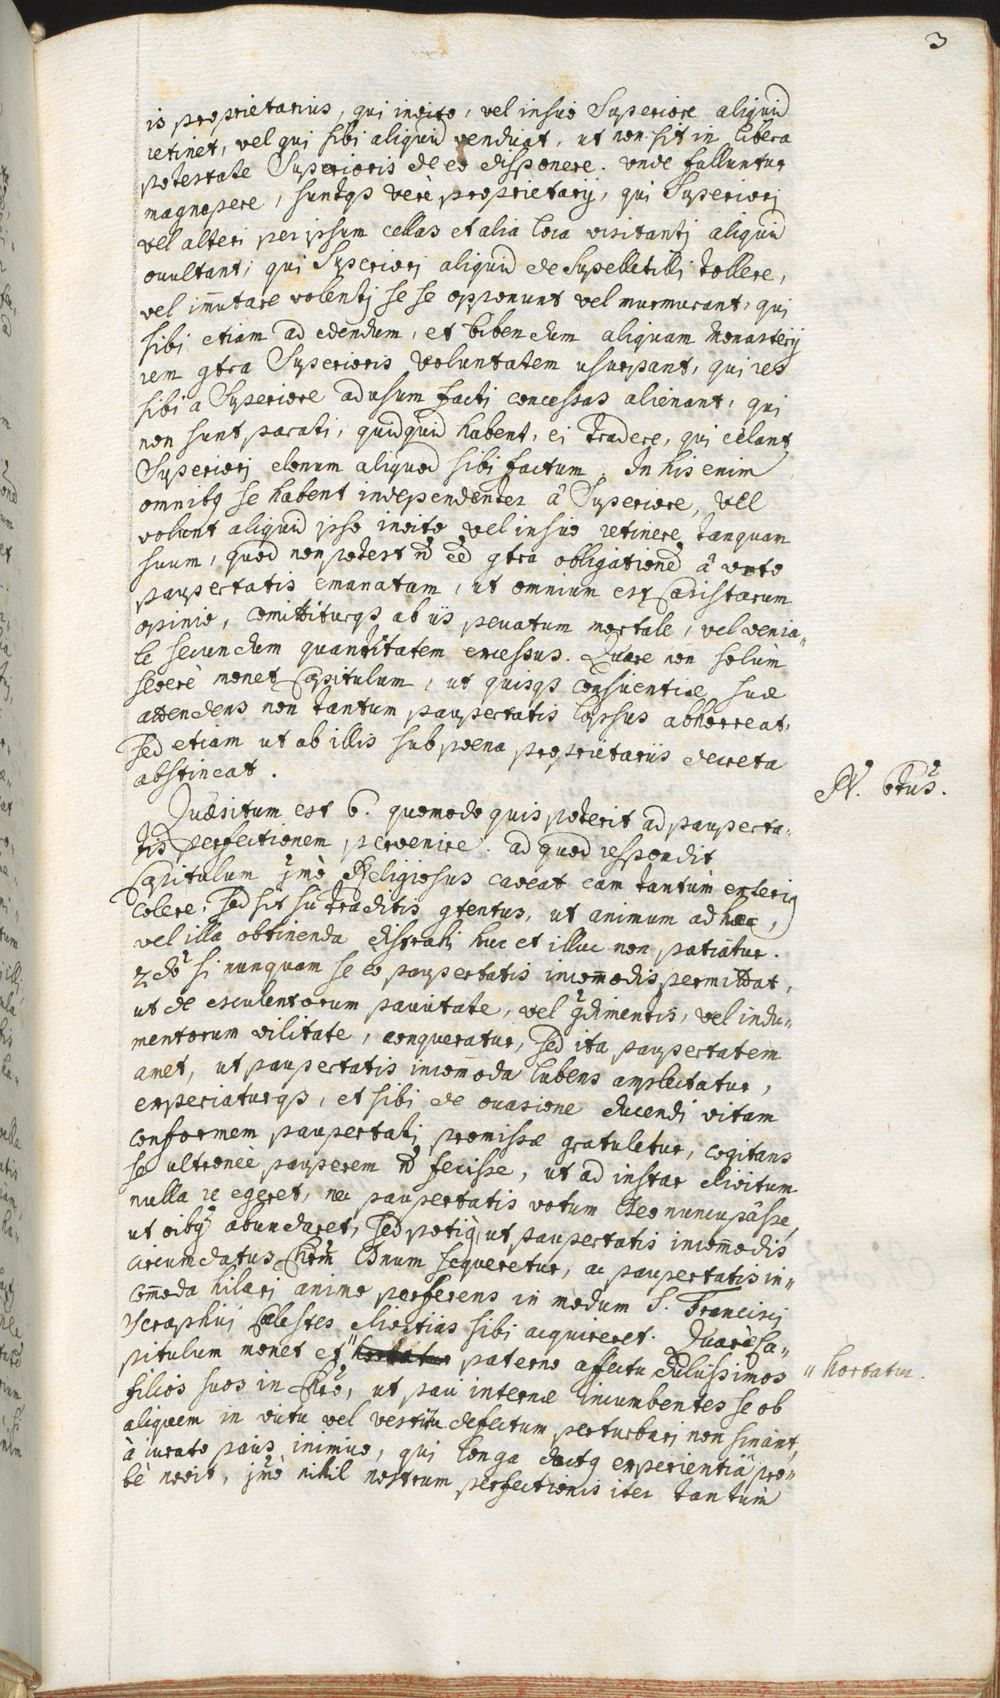 3
is proprietarius, qui invito, vel inscio Superiore aliquid
retinet, vel qui sibi aliquid vendicat, ut non sit in libera
potestate Superioris de eo disponere. vnde falluntur
magnopere, suntqs verè proprietarij, qui Superiorj
vel alteri per ipsum cellas et alia loca visitantj aliquid
occultant; qui Superiorj aliquid de Supellectili tollere,
vel im̃utare volentj se se opponunt vel murmurant, qui
sibi etiam ad edendum, et bibendum aliquam Monasterij
rem gtra Superioris voluntatem usurpant, qui res
sibi a Superiore ad usum facti concessas alienant, qui
non sunt parati, quidquid habent, ei tradere, qui celant
Superiorj donum aliquod sibi factum. In his enim
omnibq se habent independenter â Superiore, vel
volunt aliquid ipso invito vel inscio retinere tanquam
suum, quod non potest gtra obligatione â voto
paupertatis emanatam, ut omnium est Casistarum
opinio, comittiturqs ab iis peccatum mortale, vel venia„
le secundum quantitatem excessus. Quare non solùm
severè monet Capitulum, ut quisqs consientiæ suæ
attendens non tantum paupertatis lapsus abhorreat,
sed etiam ut ab illis sub poena proprietariis decreta
abstineat.
Quæsitum est 6. quomodo quis poterit ad pauperta„
tis perfectionem pervenire. ad quod respondit
Capitulum jmò Religiosus caveat eam tantùm exteriq
colere, sed sit sic traditis gtentus, ut animum ad hæc,
vel illa obtinenda distrahi huc et illuc non patiatur.
2dò si nunquam se eo paupertatis incom̃odis permittat,
ut de esculentorum parcitate, vel gdimentis, vel indu„
mentorum vilitate, conqueratur, sed ita paupertatem
amet, ut paupertatis incom̃oda lubens amplectatur,
experiaturqs, et sibi de occasione ducendi vitam
conformem paupertati promissæ gratuletur, cogitans
se ultronee pauperem fecisse, ut ad instar divitum
nulla re egeret, nec paupertatis votum Deo nuncupâsse,
ut oibq abundaret, sed potiq, ut paupertatis incom̃odis
circumdatus Chrm̃ Dnum sequeretur, ac paupertatis in„
com̃oda hilari animo perferens in modum S. Francisci
Seraphici cælestes divitias sibi acquireret. Quarè Ca„
pitulum monet et " paterno affectu dulcissimos
filios suos in Chro, ut paci internæ incumbentes se ob
aliquem in victu vel vestitu defectum perturbarj non sinant,
à iurato pacis inimico, qui longa doctq experientiâ pro„
bè novit, jmò nihil nostrum perfectionis iter tantùm
" hortatur.